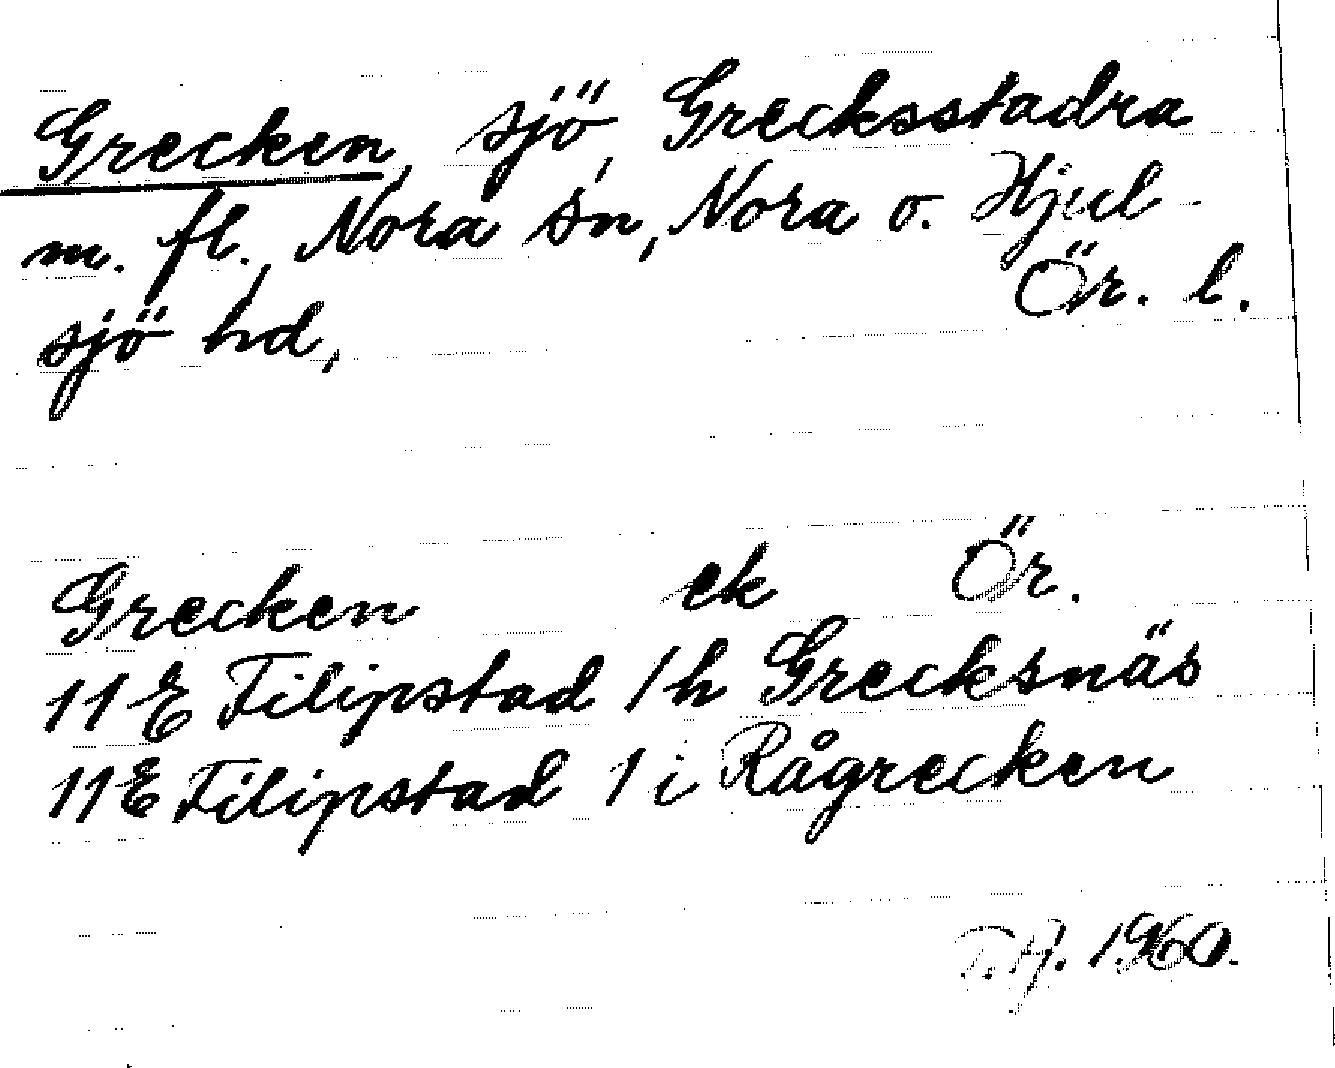 Grecken, sjö, Grecksstadra
m. fl., Nora sn, Nora o. Hjul-
sjö hd, Ör. l.
Grecken ek Ör.
11 E Filipstad 1 h Grecksnäs
11 E Filipstad 1 i Rågrecken
1960.